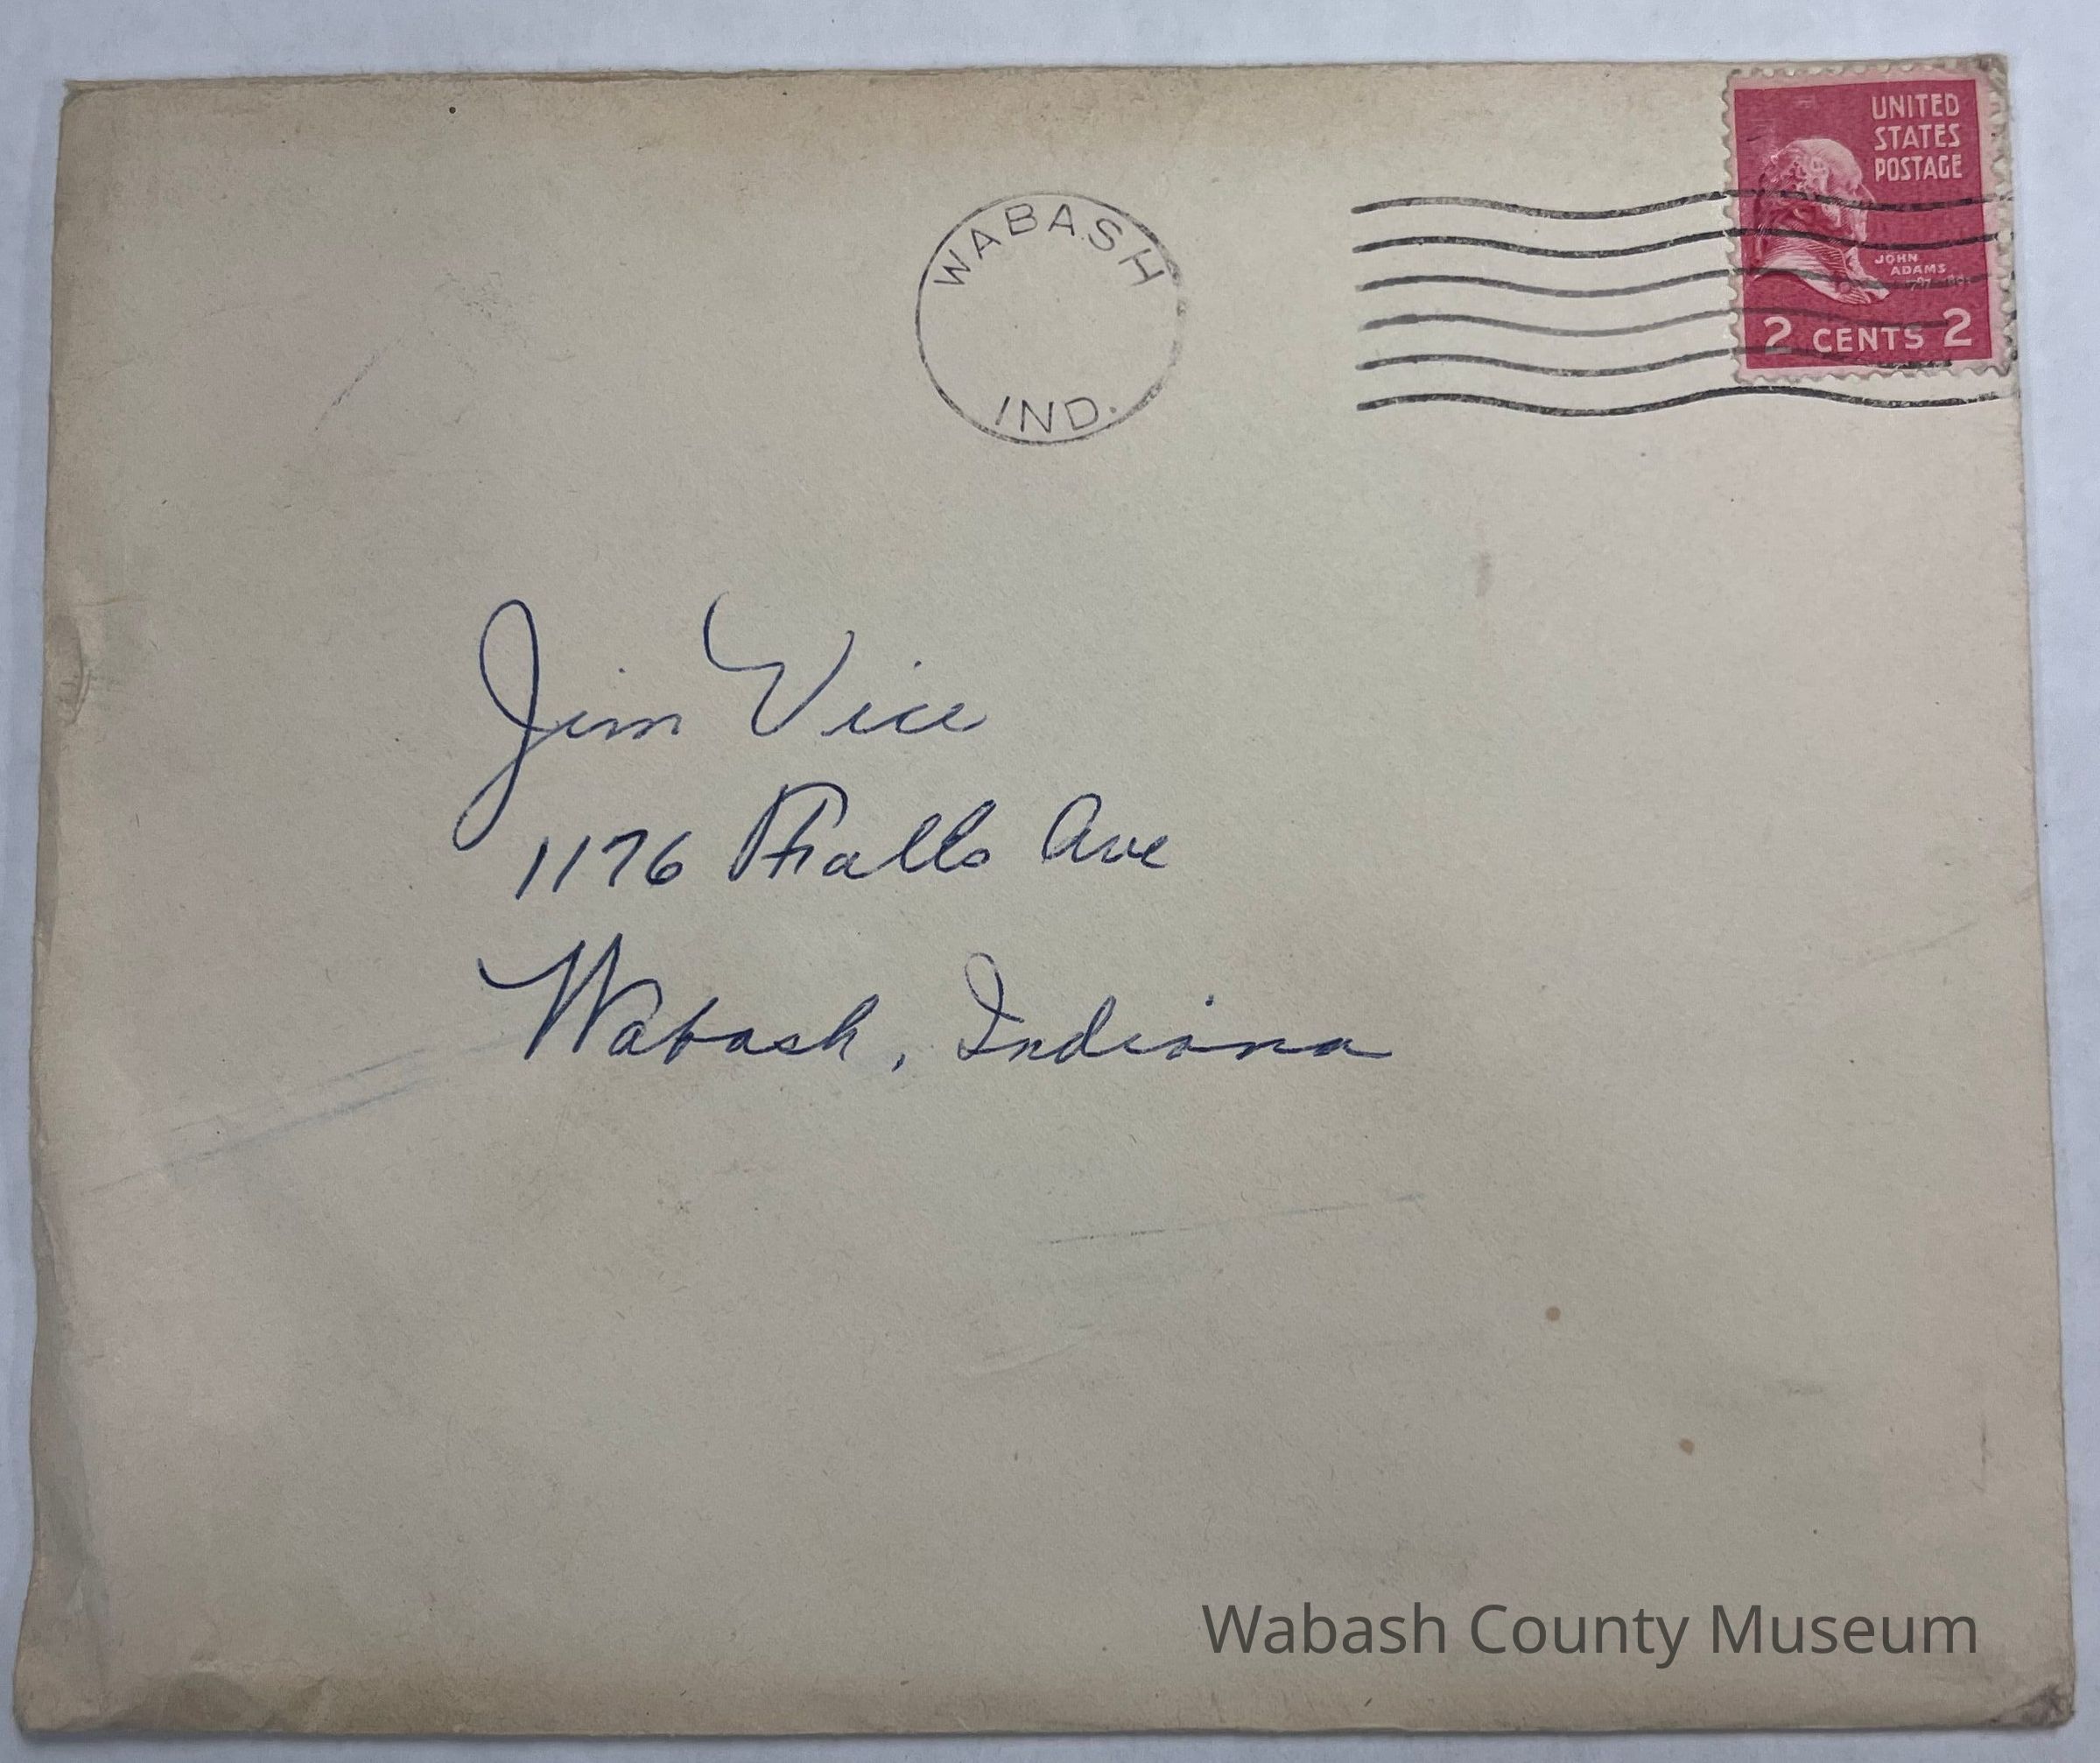 WABASH
IND.
UNITED
STATES
POSTAGE
JOHN
ADAMS
2 CENTS 2
Jim Vice
1176 Falls Ave
Wabash, Indiana
Wabash County Museum